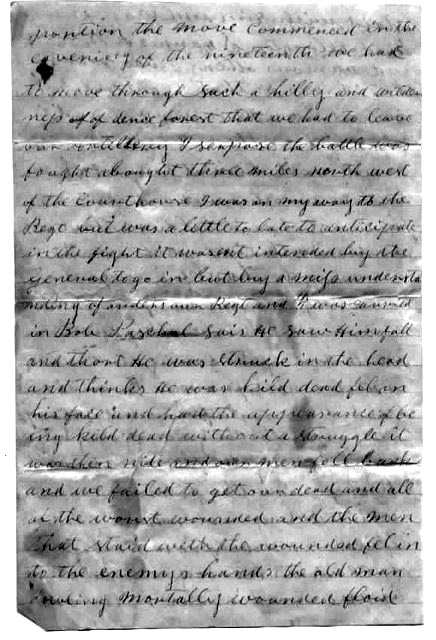 portion the move Commenced in the
evening of the nineteenth we had
to move through such a hilly and wilder
ness of of dence forest that we had to leave
our artillery I serpose the battle was
fought abought three miles north west
of the Courthouse I was on my way to the
Regt but was a little to late to anticipate
in the fight it wasent intended by the
general to go in but buy a miss understa
nding of orders our Regt and was
in Bob sais He saw Him fall
and thout He was struck in the head
and thinks He was kild dead fel on
his face and had the appearance of be
ing kild dead without a struggle it
was then nite and our men fell back
and we failed to get our dead and all
of the worst wounded and the men
that staid with the wounded fel in
to the enemys hands the old man
mortally wounded floid